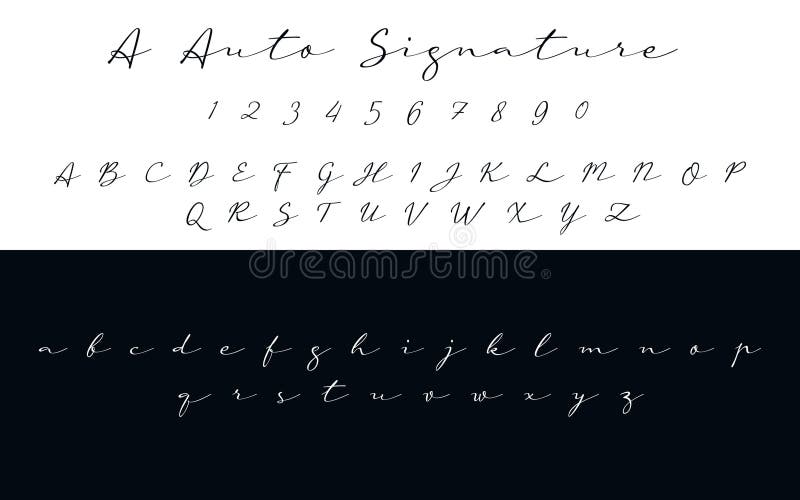 A Auto Signature
1 2 3 4 5 6 7 8 9 0
A B C D E F G H I J K L M N O P
Q R S T U V W X Y Z
dreamstime®
a b c d e f g h i j k l m n o p
q r s t u v w x y z